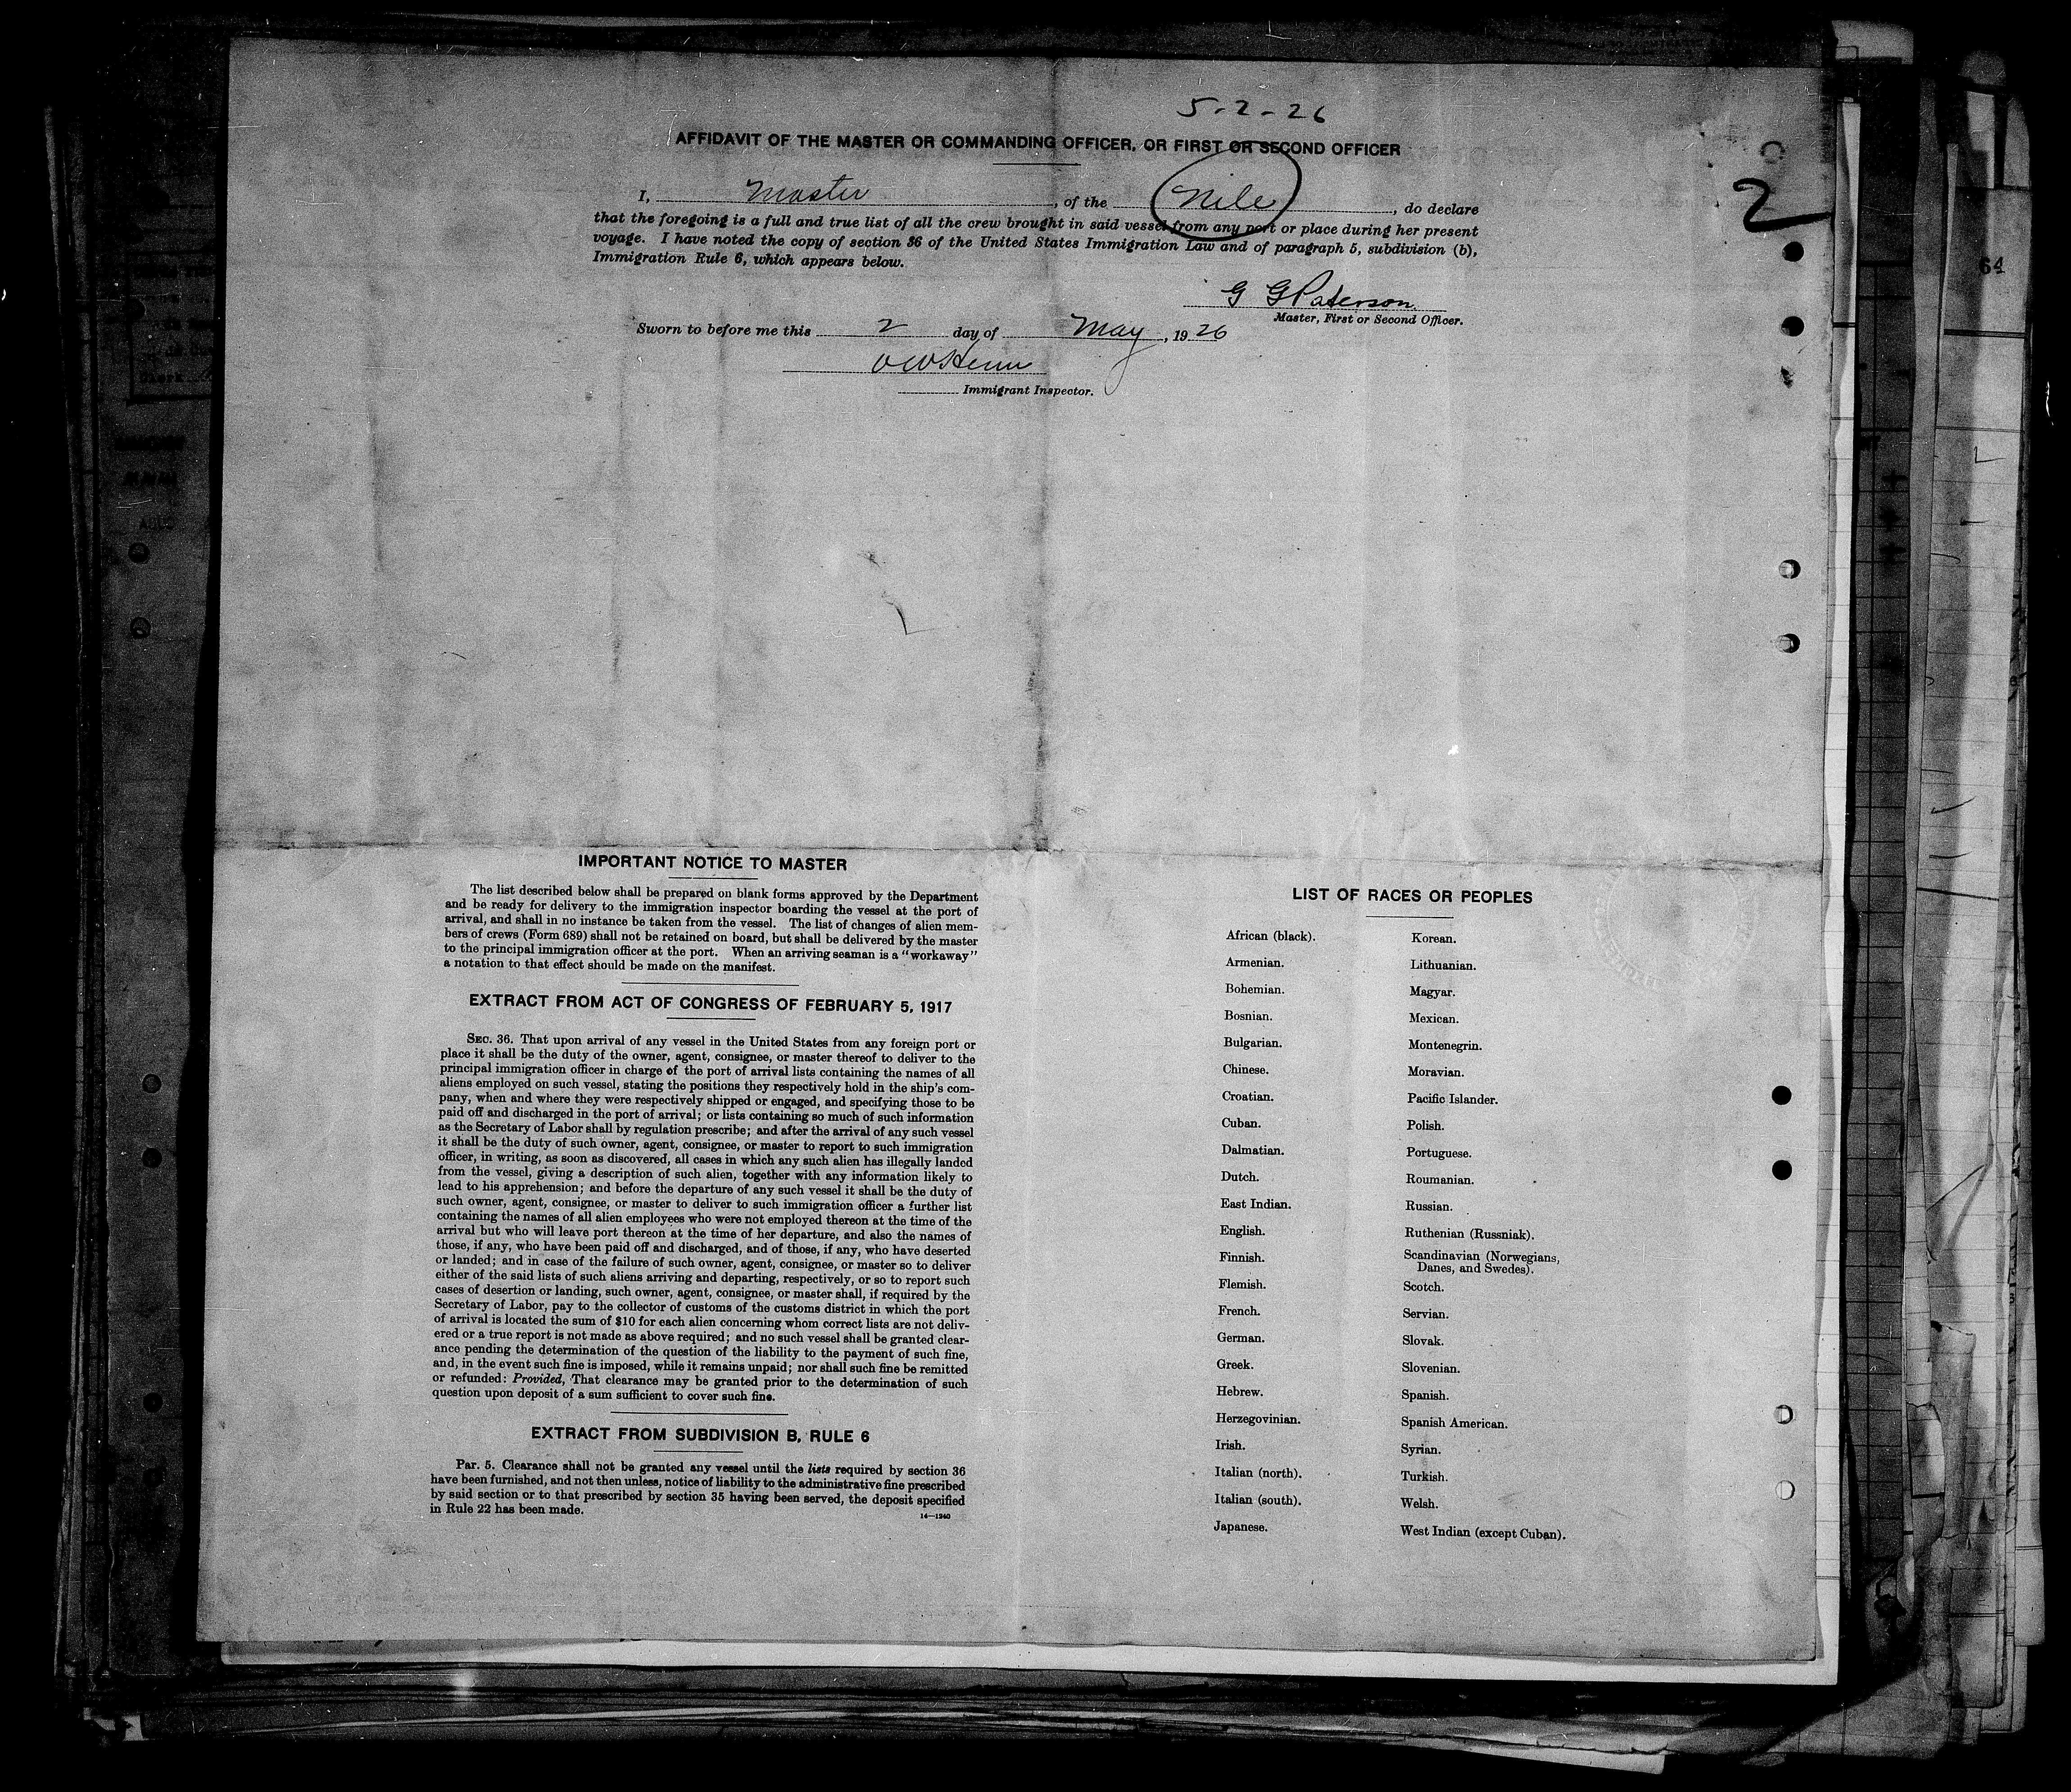 5-2-26
AFFIDAVIT OF THE MASTER OR COMMANDING OFFICER, OR FIRST OR SECOND OFFICER
2
I, Master, of the Nile, do declare
that the foregoing is a full and true list of all the crew brought in said vessel from any port or place during her present
voyage. I have noted the copy of section 36 of the United States Immigration Law and of paragraph 5, subdivision (b),
Immigration Rule 6, which appears below.
G G Paterson
Master, First or Second Officer.
Sworn to before me this 2 day of May, 1926
Immigrant Inspector.
64
IMPORTANT NOTICE TO MASTER
The list described below shall be prepared on blank forms approved by the Department
and be ready for delivery to the immigration inspector boarding the vessel at the port of
arrival, and shall in no instance be taken from the vessel. The list of changes of alien mem-
bers of crews (Form 689) shall not be retained on board, but shall be delivered by the master
to the principal immigration officer at the port. When an arriving seaman is a "workaway"
a notation to that effect should be made on the manifest.
EXTRACT FROM ACT OF CONGRESS OF FEBRUARY 5, 1917
SEC. 36. That upon arrival of any vessel in the United States from any foreign port or
place it shall be the duty of the owner, agent, consignee, or master thereof to deliver to the
principal immigration officer in charge of the port of arrival lists containing the names of all
aliens employed on such vessel, stating the positions they respectively hold in the ship's com-
pany, when and where they were respectively shipped or engaged, and specifying those to be
paid off and discharged in the port of arrival; or lists containing so much of such information
as the Secretary of Labor shall by regulation prescribe; and after the arrival of any such vessel
it shall be the duty of such owner, agent, consignee, or master to report to such immigration
officer, in writing, as soon as discovered, all cases in which any such alien has illegally landed
from the vessel, giving a description of such alien, together with any information likely to
lead to his apprehension; and before the departure of any such vessel it shall be the duty of
such owner, agent, consignee, or master to deliver to such immigration officer a further list
containing the names of all alien employees who were not employed thereon at the time of the
arrival but who will leave port thereon at the time of her departure, and also the names of
those, if any, who have been paid off and discharged, and of those, if any, who have deserted
or landed; and in case of the failure of such owner, agent, consignee, or master so to deliver
either of the said lists of such aliens arriving and departing, respectively, or so to report such
cases of desertion or landing, such owner, agent, consignee, or master shall, if required by the
Secretary of Labor, pay to the collector of customs of the customs district in which the port
of arrival is located the sum of $10 for each alien concerning whom correct lists are not deliv-
ered or a true report is not made as above required; and no such vessel shall be granted clear-
ance pending the determination of the question of the liability to the payment of such fine,
and, in the event such fine is imposed, while it remains unpaid; nor shall such fine be remitted
or refunded: Provided, That clearance may be granted prior to the determination of such
question upon deposit of a sum sufficient to cover such fine.
EXTRACT FROM SUBDIVISION B, RULE 6
Par. 5. Clearance shall not be granted any vessel until the lists required by section 36
have been furnished, and not then unless, notice of liability to the administrative fine prescribed
by said section or to that prescribed by section 35 having been served, the deposit specified
in Rule 22 has been made.
14—1240
LIST OF RACES OR PEOPLES
African (black).
Armenian.
Bohemian.
Bosnian.
Bulgarian.
Chinese.
Croatian.
Cuban.
Dalmatian.
Dutch.
East Indian.
English.
Finnish.
Flemish.
French.
German.
Greek.
Hebrew.
Herzegovinian.
Irish.
Italian (north).
Italian (south).
Japanese.
Korean.
Lithuanian.
Magyar.
Mexican.
Montenegrin.
Moravian.
Pacific Islander.
Polish.
Portuguese.
Roumanian.
Russian.
Ruthenian (Russniak).
Scandinavian (Norwegians,
Danes, and Swedes).
Scotch.
Servian.
Slovak.
Slovenian.
Spanish.
Spanish American.
Syrian.
Turkish.
Welsh.
West Indian (except Cuban).